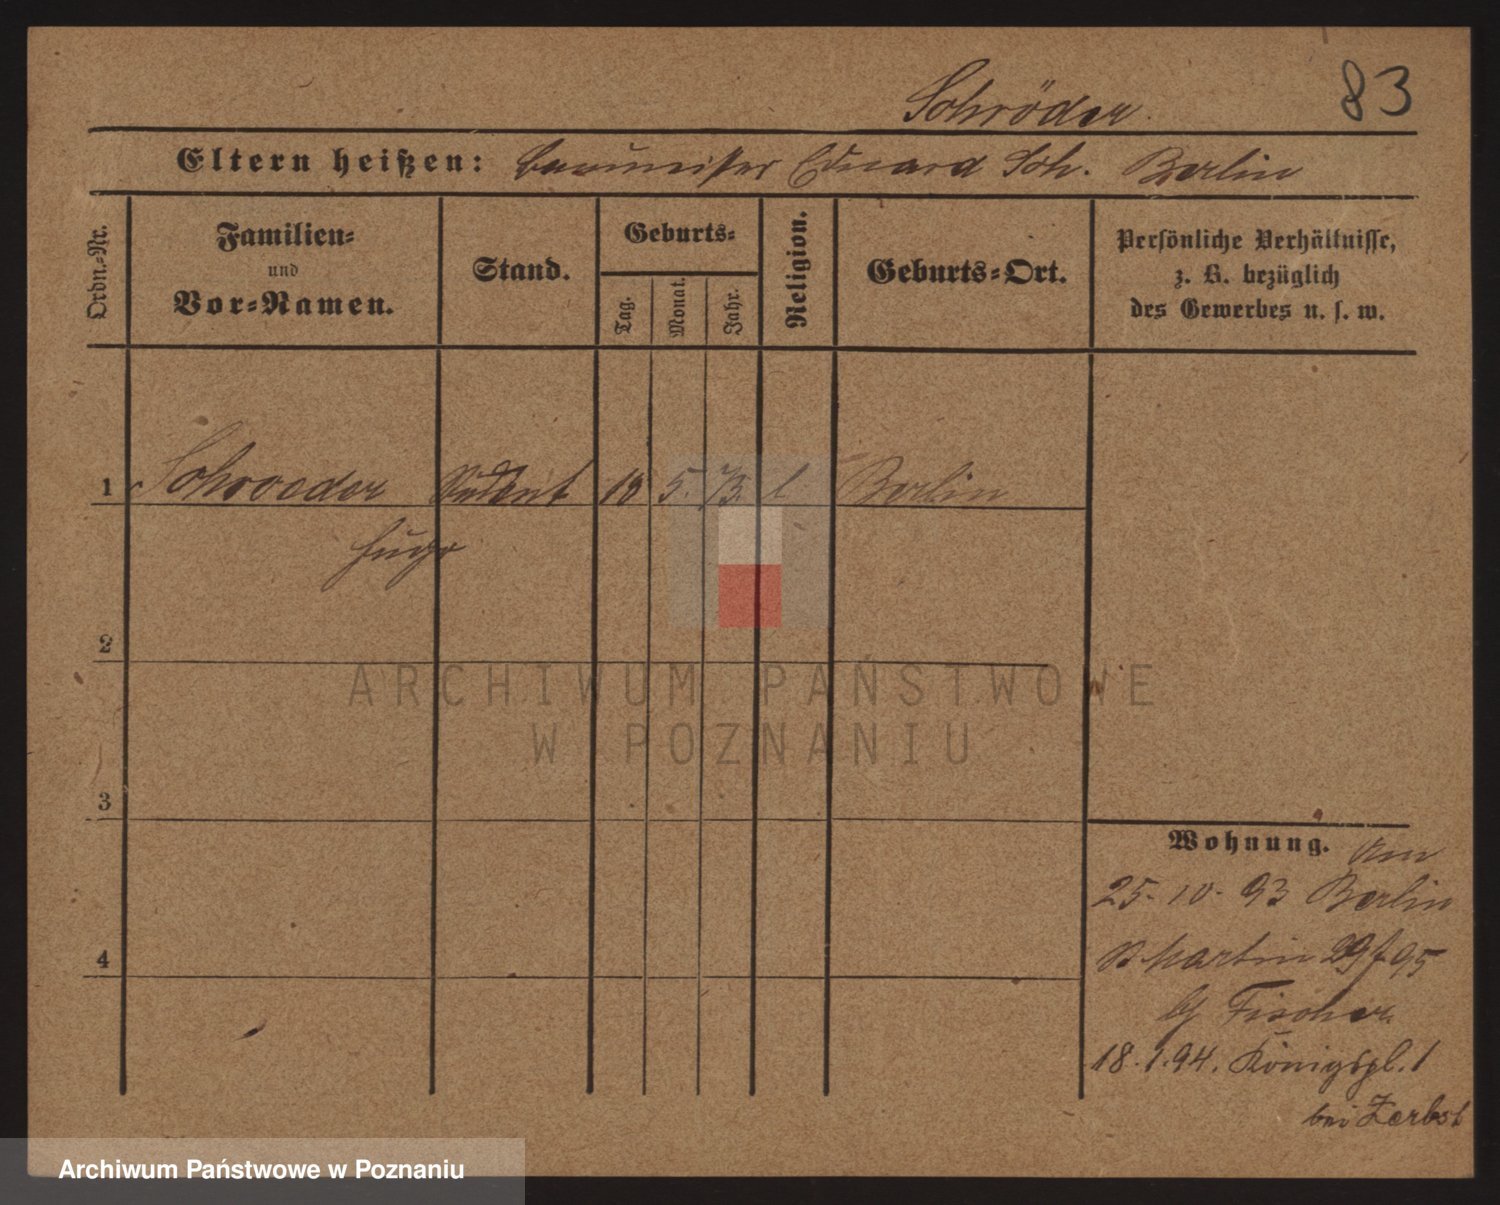 83
Schröder
Eltern heißen: Baumeister Eduard Sch. Berlin
Ordn.-Nr.
Familien-
und
Vor-Namen.
Stand.
Geburts-
Tag.
Monat.
Jahr.
Religion.
Geburts-Ort.
Persönliche Verhältnisse,
z. B. bezüglich
des Gewerbes u. s. w.
1 Schroeder Student 18 5. 73. l Berlin
Hugo
2
3
4
Wohnung. Am
25. 10. 93 Berlin
St Martin
Fischer
18. 1. 94. Königspl. 1
bei Zerbst
ARCHIWUM PAŃSTWOWE
W POZNANIU
Archiwum Państwowe w Poznaniu